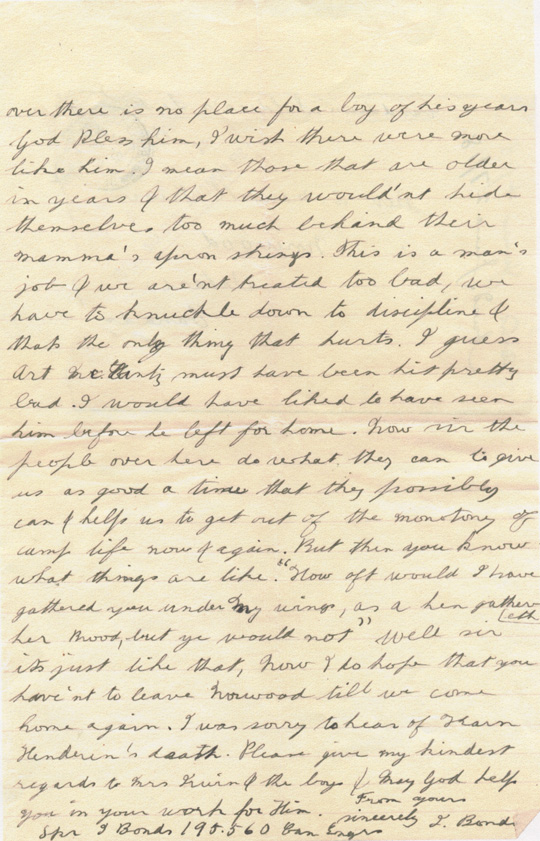 over there is no place for a boy of his years
God Bless him, I wish there were more
like him. I mean those that are older
in years & that they would'nt hide
themselves too much behind their
mamma's apron strings. This is a man's
job & we are'nt treated too bad, we
have to knuckle down to discipline &
thats the only thing that hurts. I guess
Art must have been hit pretty
bad. I would have liked to have seen
him before he left for home. Now sir the
people over here do what they can to give
us as good a time that they possibly
can & helps us to get out of the monotony of
camp life now & again. But then you know
what things are like. "How oft would I have
gathered you under my wings, as a hen gathereth
her Brood, but ye would not" Well sir
its just like that, Now I do hope that you
have'nt to leave Norwood till we come
home again. I was sorry to hear of
death. Please give my kindest
regards to Mrs & the boys & May God help
you in your work for Him.
From yours
sincerely T. Bonds
Spr T Bonds 195.560 Can Engrs